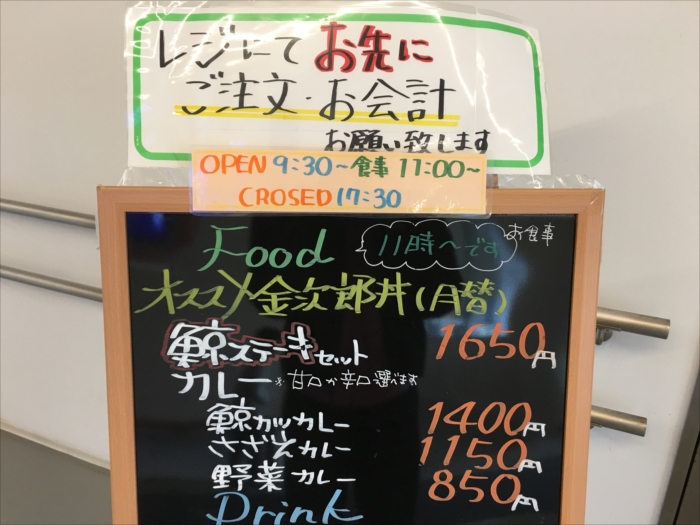 レジにて お先に
ご注文・お会計
お願い致します
OPEN 9:30~食事 11:00~
CROSED 17:30
Food 11時〜です お食事
オススメ金次郎丼(月替)
鯨ステーキセット 1650円
カレー ※甘口か辛口選べます
鯨カツカレー 1400円
さざえカレー 1150円
野菜カレー 850円
Drink